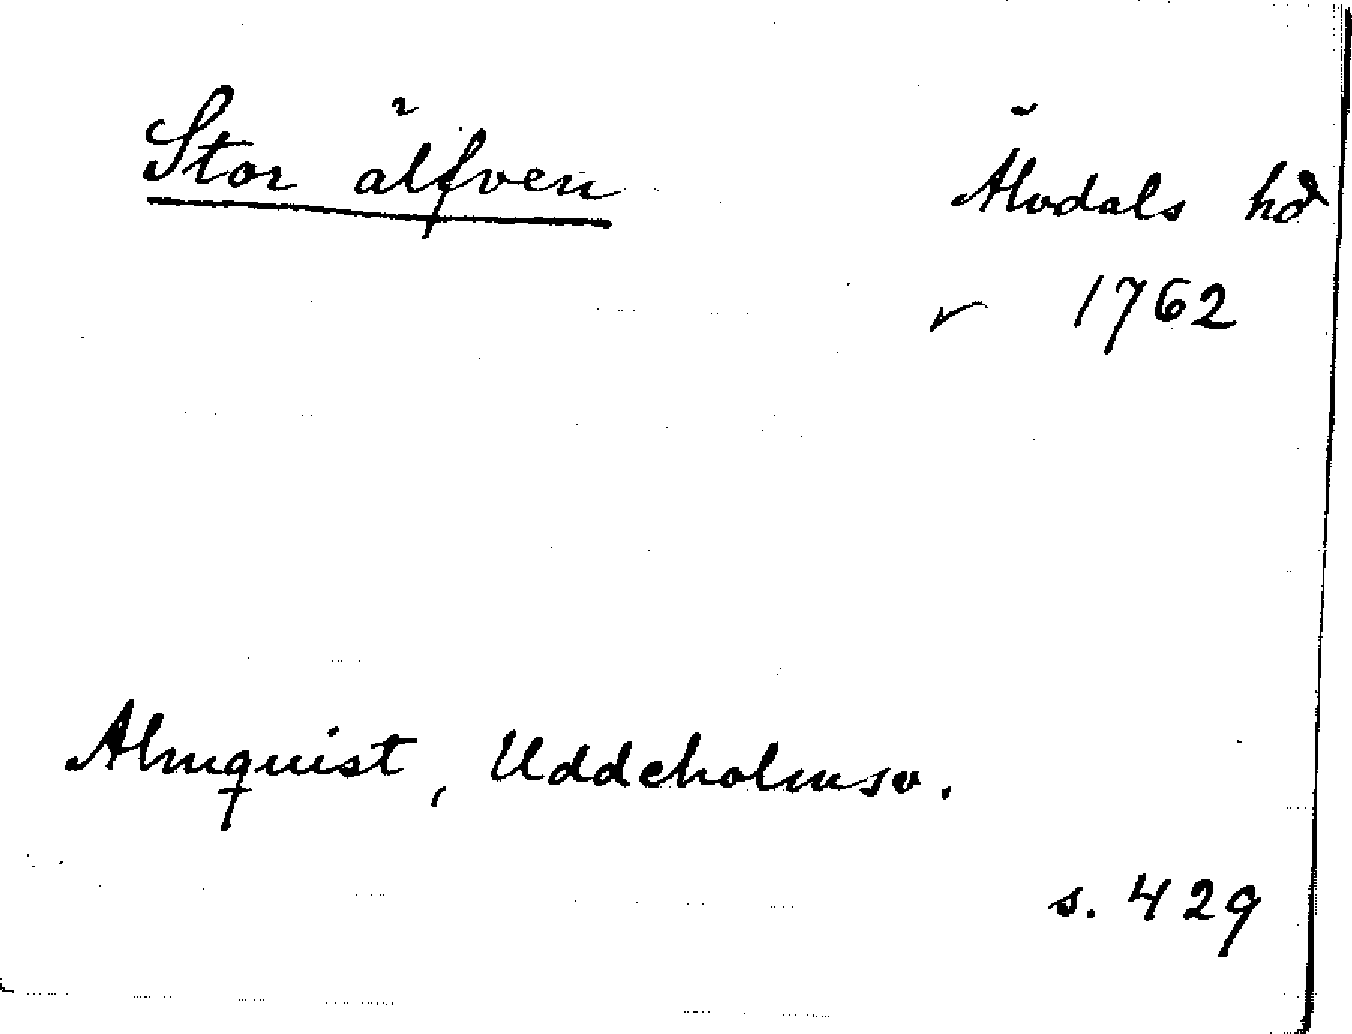 Stor älfven
Älvdals hd
1762
Almquist, Uddeholmsv.
s. 429